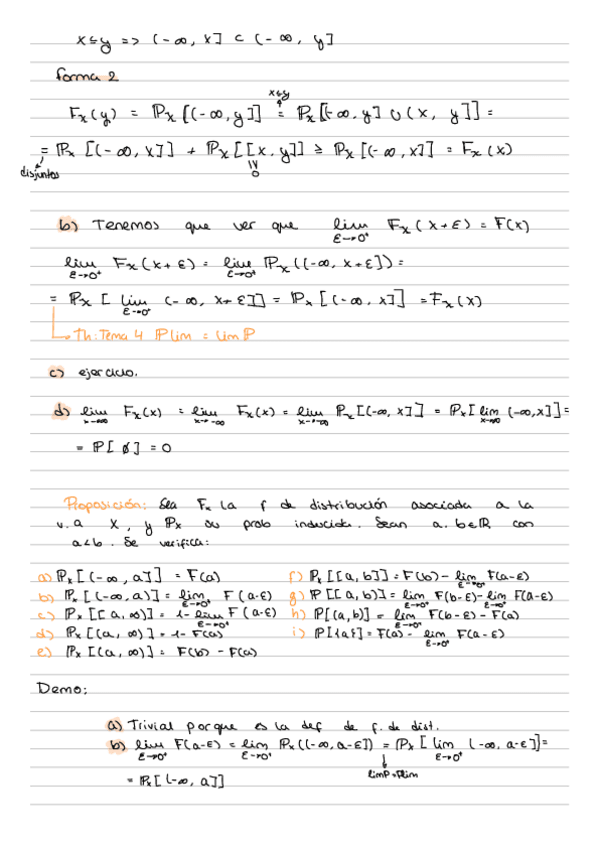 x ≤ y => (-∞, x] ⊂ (-∞, y]
forma 2
x≤y
Fx(y) = Px[(-∞,y]] = Px[(-∞,y] ∪ (x, y]] =
= Px [(-∞, x]] + Px[[x,y]] ≥ Px[(-∞,x]] = Fx(x)
disjuntos ≥ 0
b) Tenemos que ver que lim ε→0⁺ Fx(x+ε) = F(x)
lim ε→0⁺ Fx(x+ε) = lim ε→0⁺ Px((-∞, x+ε]) =
= Px [ lim ε→0⁺ (-∞, x+ε]] = Px[(-∞, x]] = Fx(x)
Th: Tema 4 P lim = lim P
c) ejercicio.
d) lim x→-∞ Fx(x) = lim x→-∞ Fx(x) = lim x→-∞ Px[(-∞, x]] = Px[lim (-∞,x]] =
= P[∅] = 0
Proposición: Sea Fx la f de distribución asociada a la
v.a X, y Px su prob inducida. Sean a, b∈R con
a<b. Se verifica:
a) Px[(-∞, a]] = F(a) f) Px[[a,b]] = F(b) - lim ε→0⁺ F(a-ε)
b) Px[(-∞,a)] = lim ε→0⁺ F(a-ε) g) P[[a,b)] = lim ε→0⁺ F(b-ε) - lim ε→0⁺ F(a-ε)
c) Px[[a,∞)] = 1 - lim ε→0⁺ F(a-ε) h) P[(a,b)] = lim ε→0⁺ F(b-ε) - F(a)
d) Px[(a,∞)] = 1 - F(a) i) P[{a}] = F(a) - lim ε→0⁺ F(a-ε)
e) Px[(a,∞)] = F(b) - F(a)
Demo:
a) Trivial porque es la def de f. de dist.
b) lim ε→0⁺ F(a-ε) = lim ε→0⁺ Px((-∞,a-ε]) = Px[lim ε→0⁺ (-∞, a-ε]] =
limP=Plim
= Px[(-∞, a]]